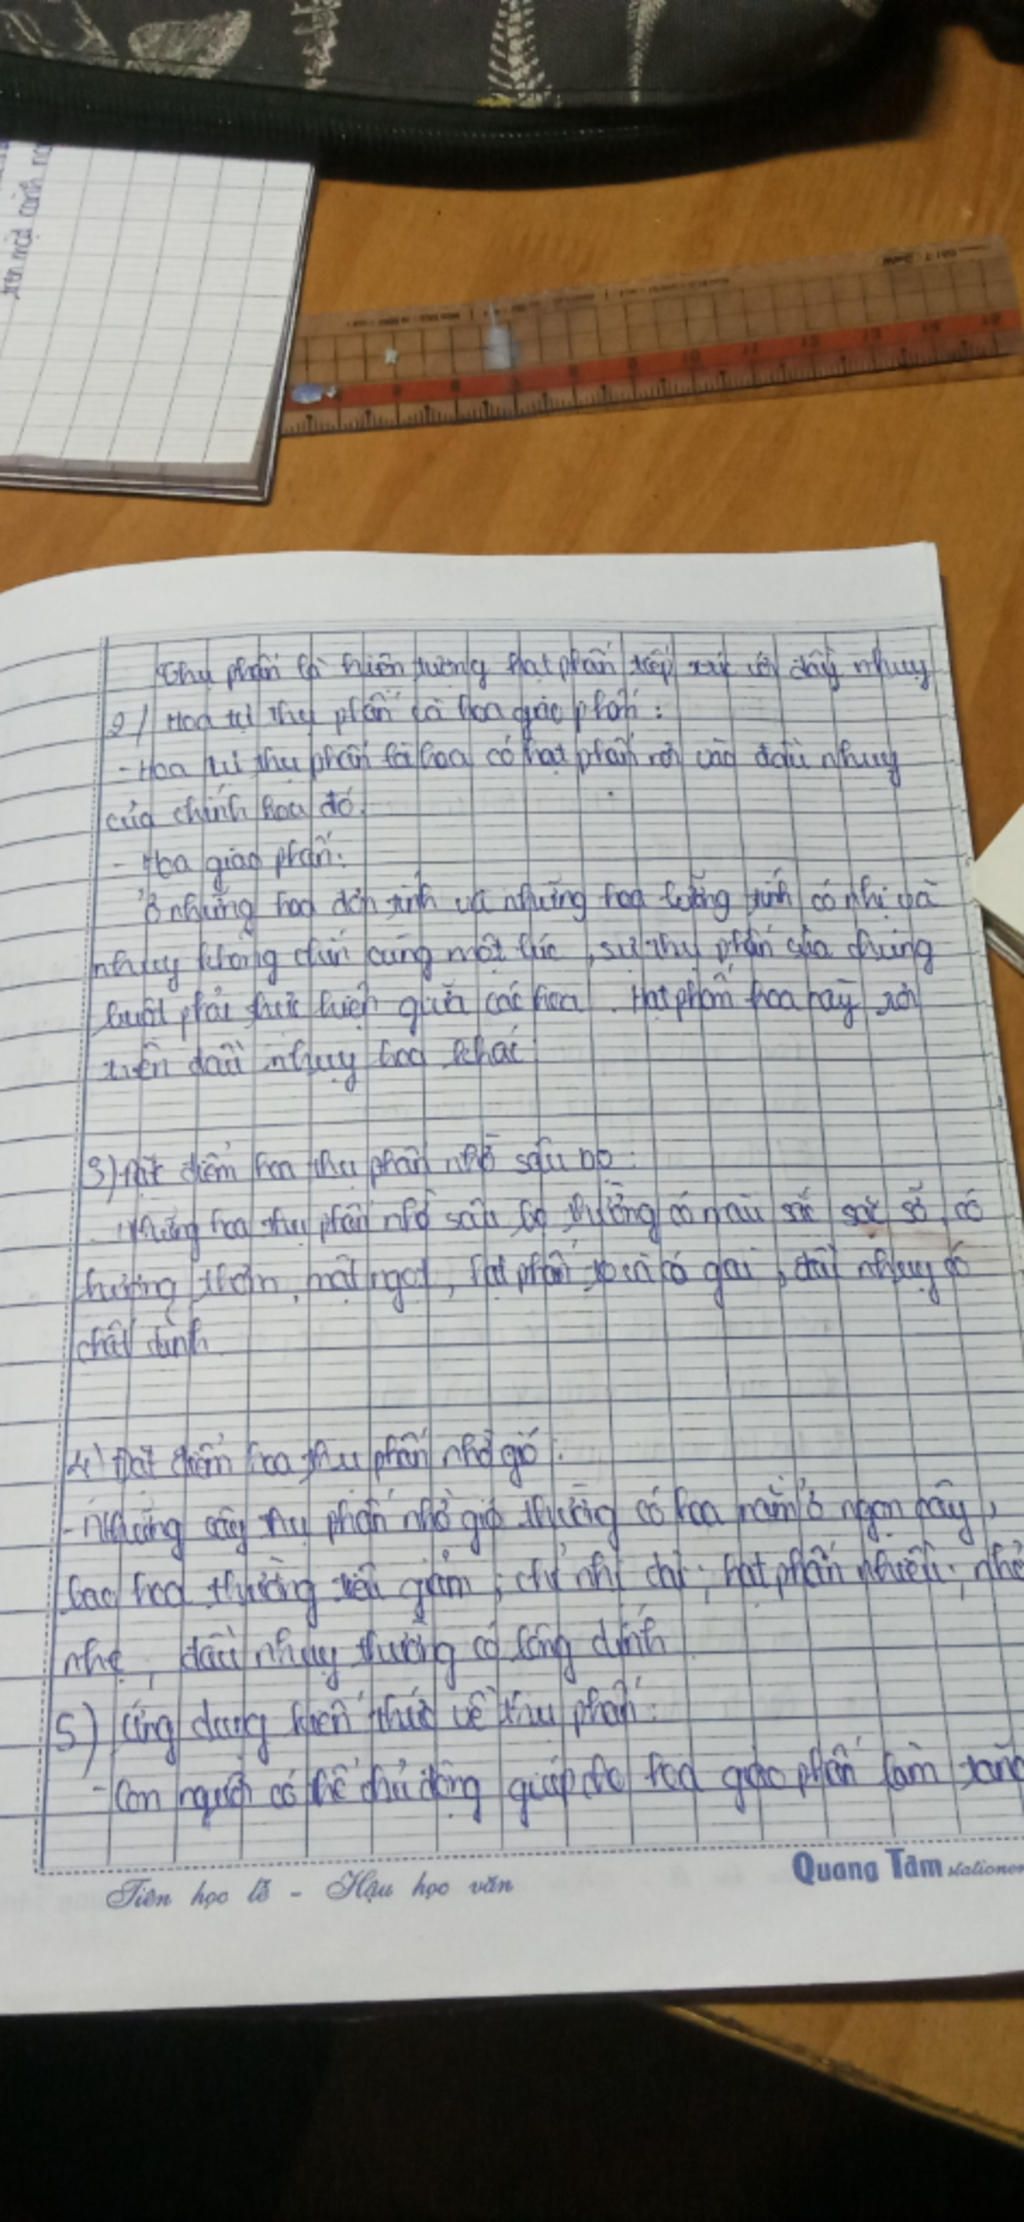 trên một cành
Thụ phấn là hiện tượng hạt phấn tiếp xúc với đầy nhuỵ
2) Hoa tự thụ phấn và hoa giao phấn:
- Hoa tự thụ phấn là hoa có hạt phấn rơi vào đầu nhuỵ
của chính hoa đó.
- Hoa giao phấn:
Ở những hoa đơn tính và những hoa lưỡng tính có nhị và
nhuỵ không chín cùng một lúc, sự thụ phấn của chúng
buột phải thực hiện giữa các hoa. Hạt phấn hoa này rơi
trên đầu nhuỵ hoa khác
3) Đặc điểm hoa thụ phấn nhờ sâu bọ:
Những hoa thụ phấn nhờ sâu bọ thường có màu sắc sặc sỡ, có
hương thơm, mật ngọt, hạt phấn to và có gai, đầu nhuỵ có
chất dính
4) Đặc điểm hoa thụ phấn nhờ gió:
- Những cây thụ phấn nhờ gió thường có hoa nằm ở ngọn cây,
bao hoa thường tiêu giảm; chỉ nhị dài; hạt phấn nhiều; nhỏ
nhẹ, đầu nhuỵ thường có lông dính
5) Ứng dụng kiến thức về thụ phấn:
- Con người có thể chủ động giúp cho hoa giao phấn làm tăng
Tiên học lễ - Hậu học văn
Quang Tâm